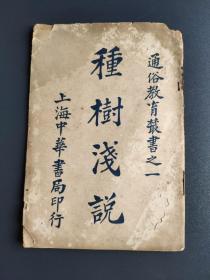 通俗教育叢書之一
種樹淺説
上海中華書局印行